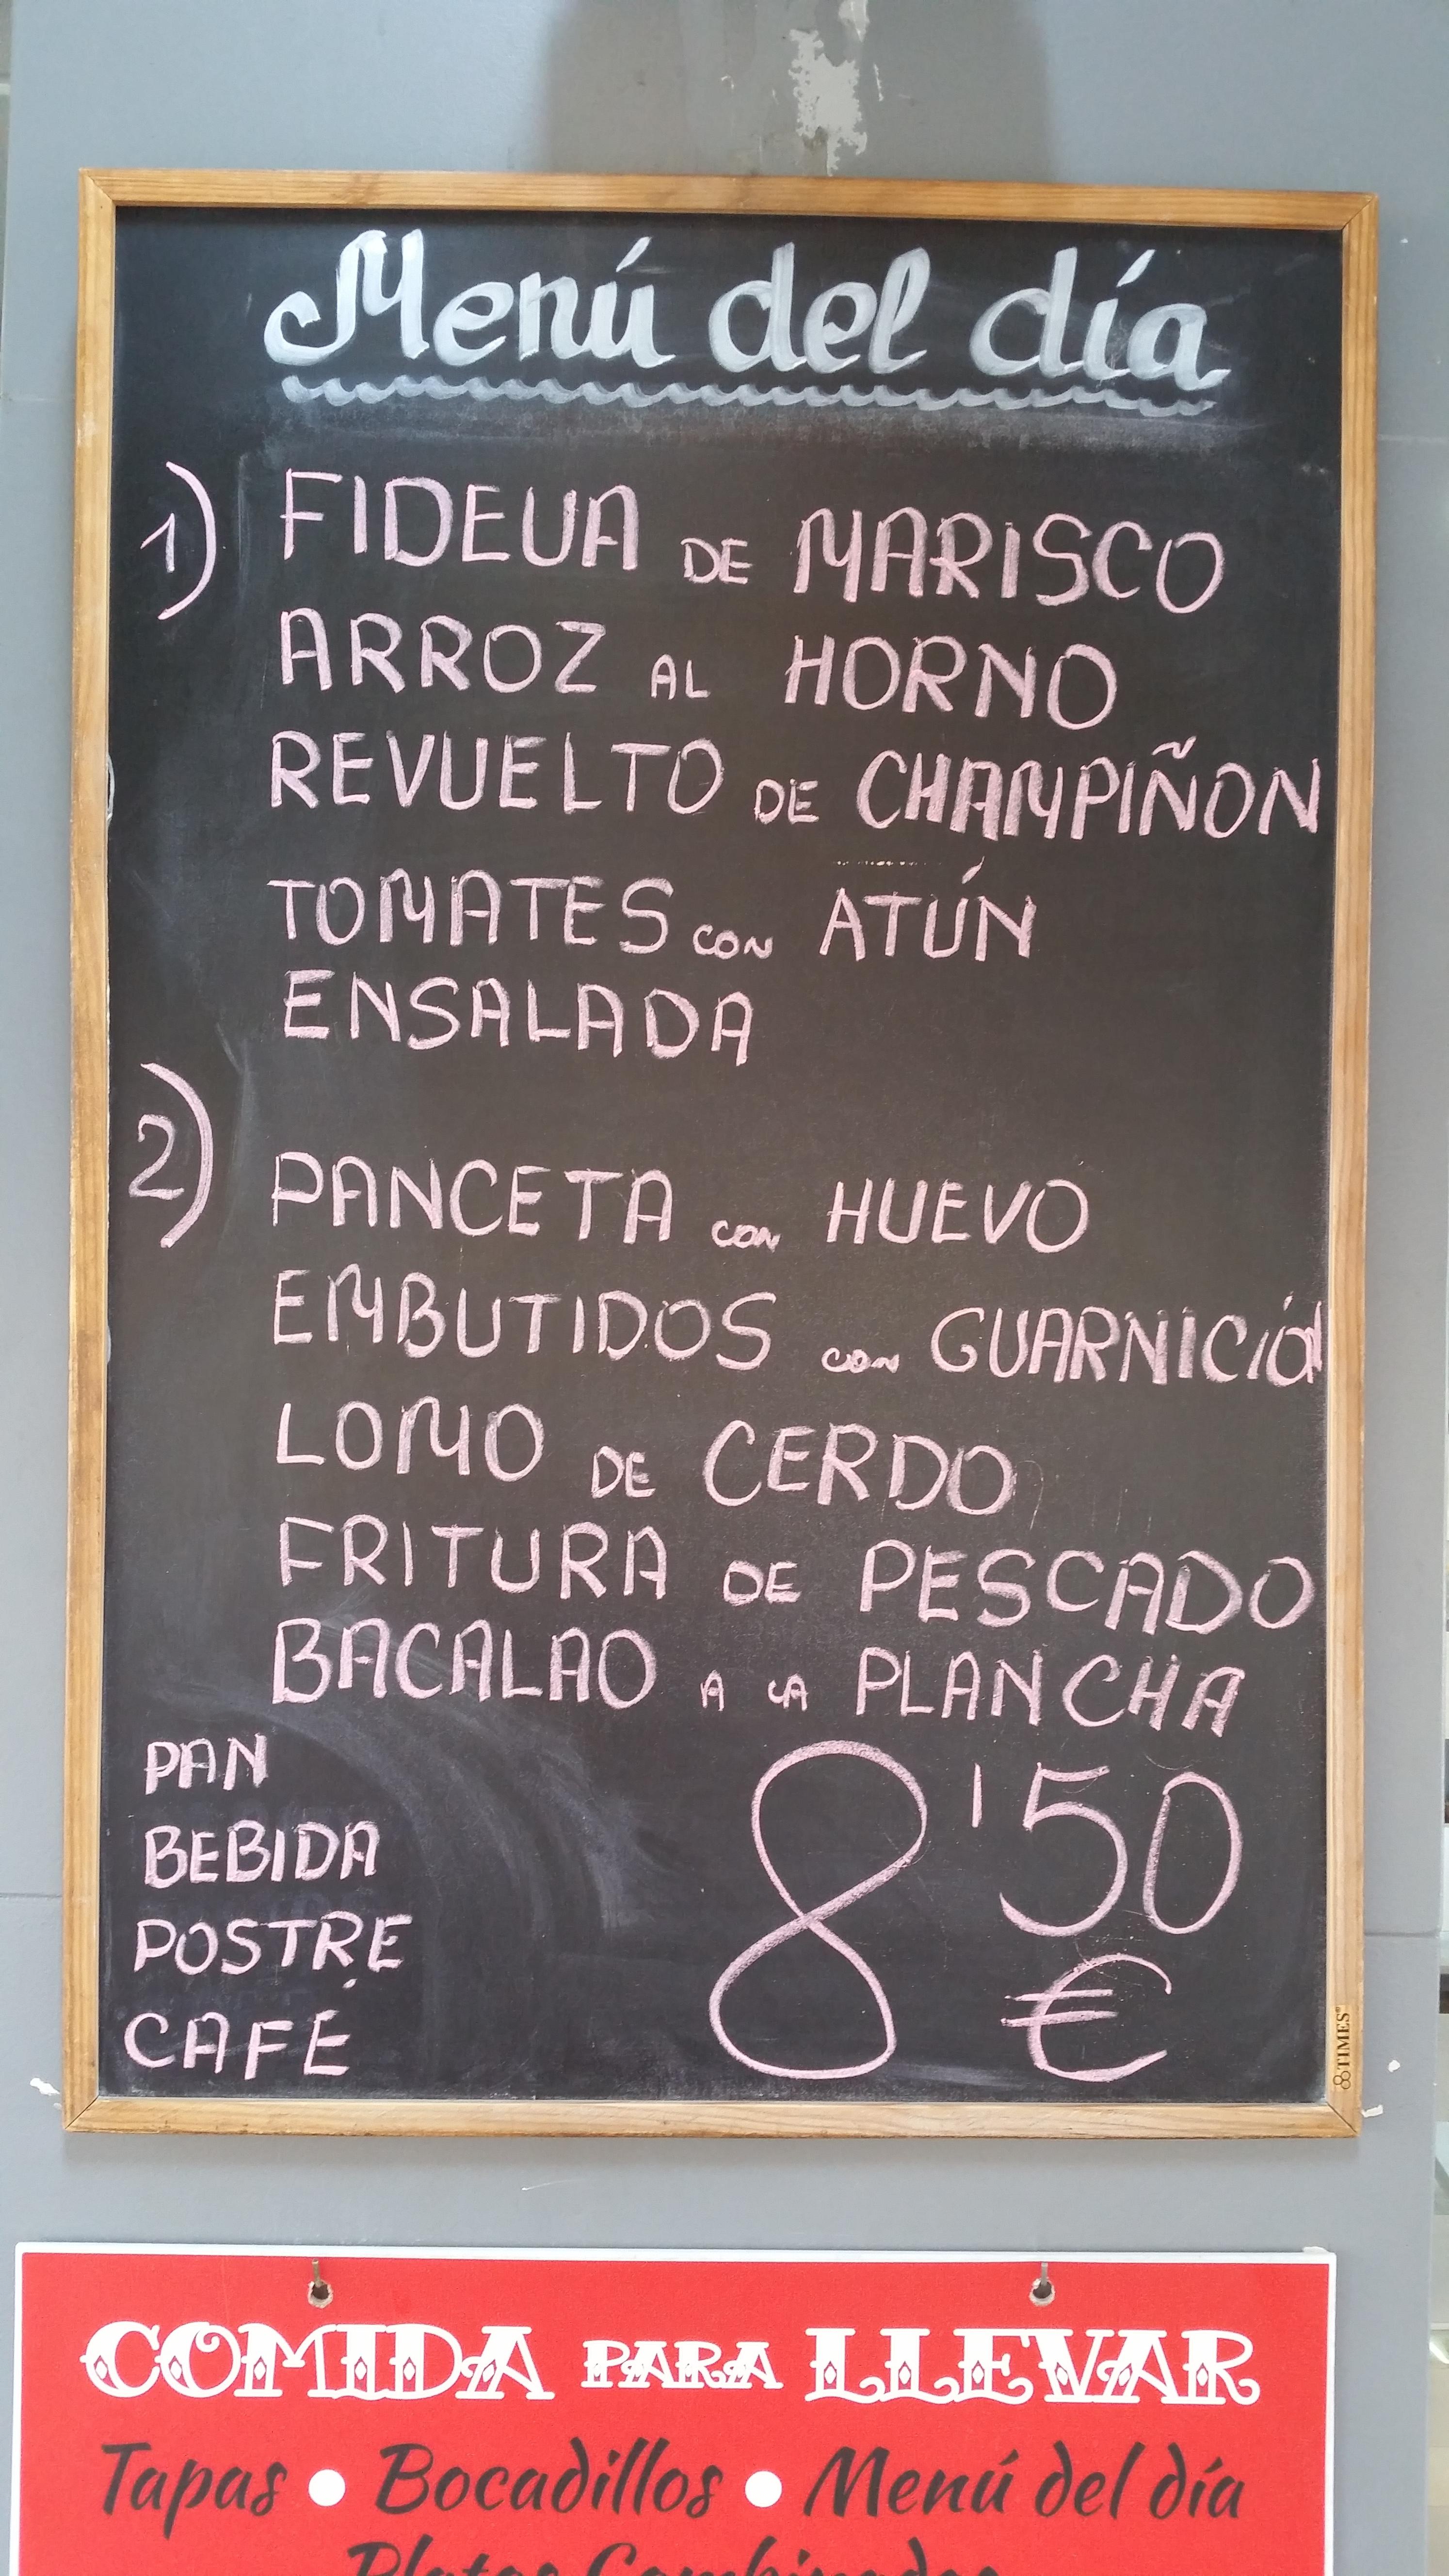 Menú del día
1) FIDEUA DE MARISCO
ARROZ AL HORNO
REVUELTO DE CHAMPIÑON
TOMATES CON ATÚN
ENSALADA
2) PANCETA CON HUEVO
EMBUTIDOS CON GUARNICIÓN
LOMO DE CERDO
FRITURA DE PESCADO
BACALAO A LA PLANCHA
PAN
BEBIDA
POSTRE
CAFÉ
8'50
€
TIMES®
COMIDA PARA LLEVAR
Tapas • Bocadillos • Menú del día
Platos Combinados